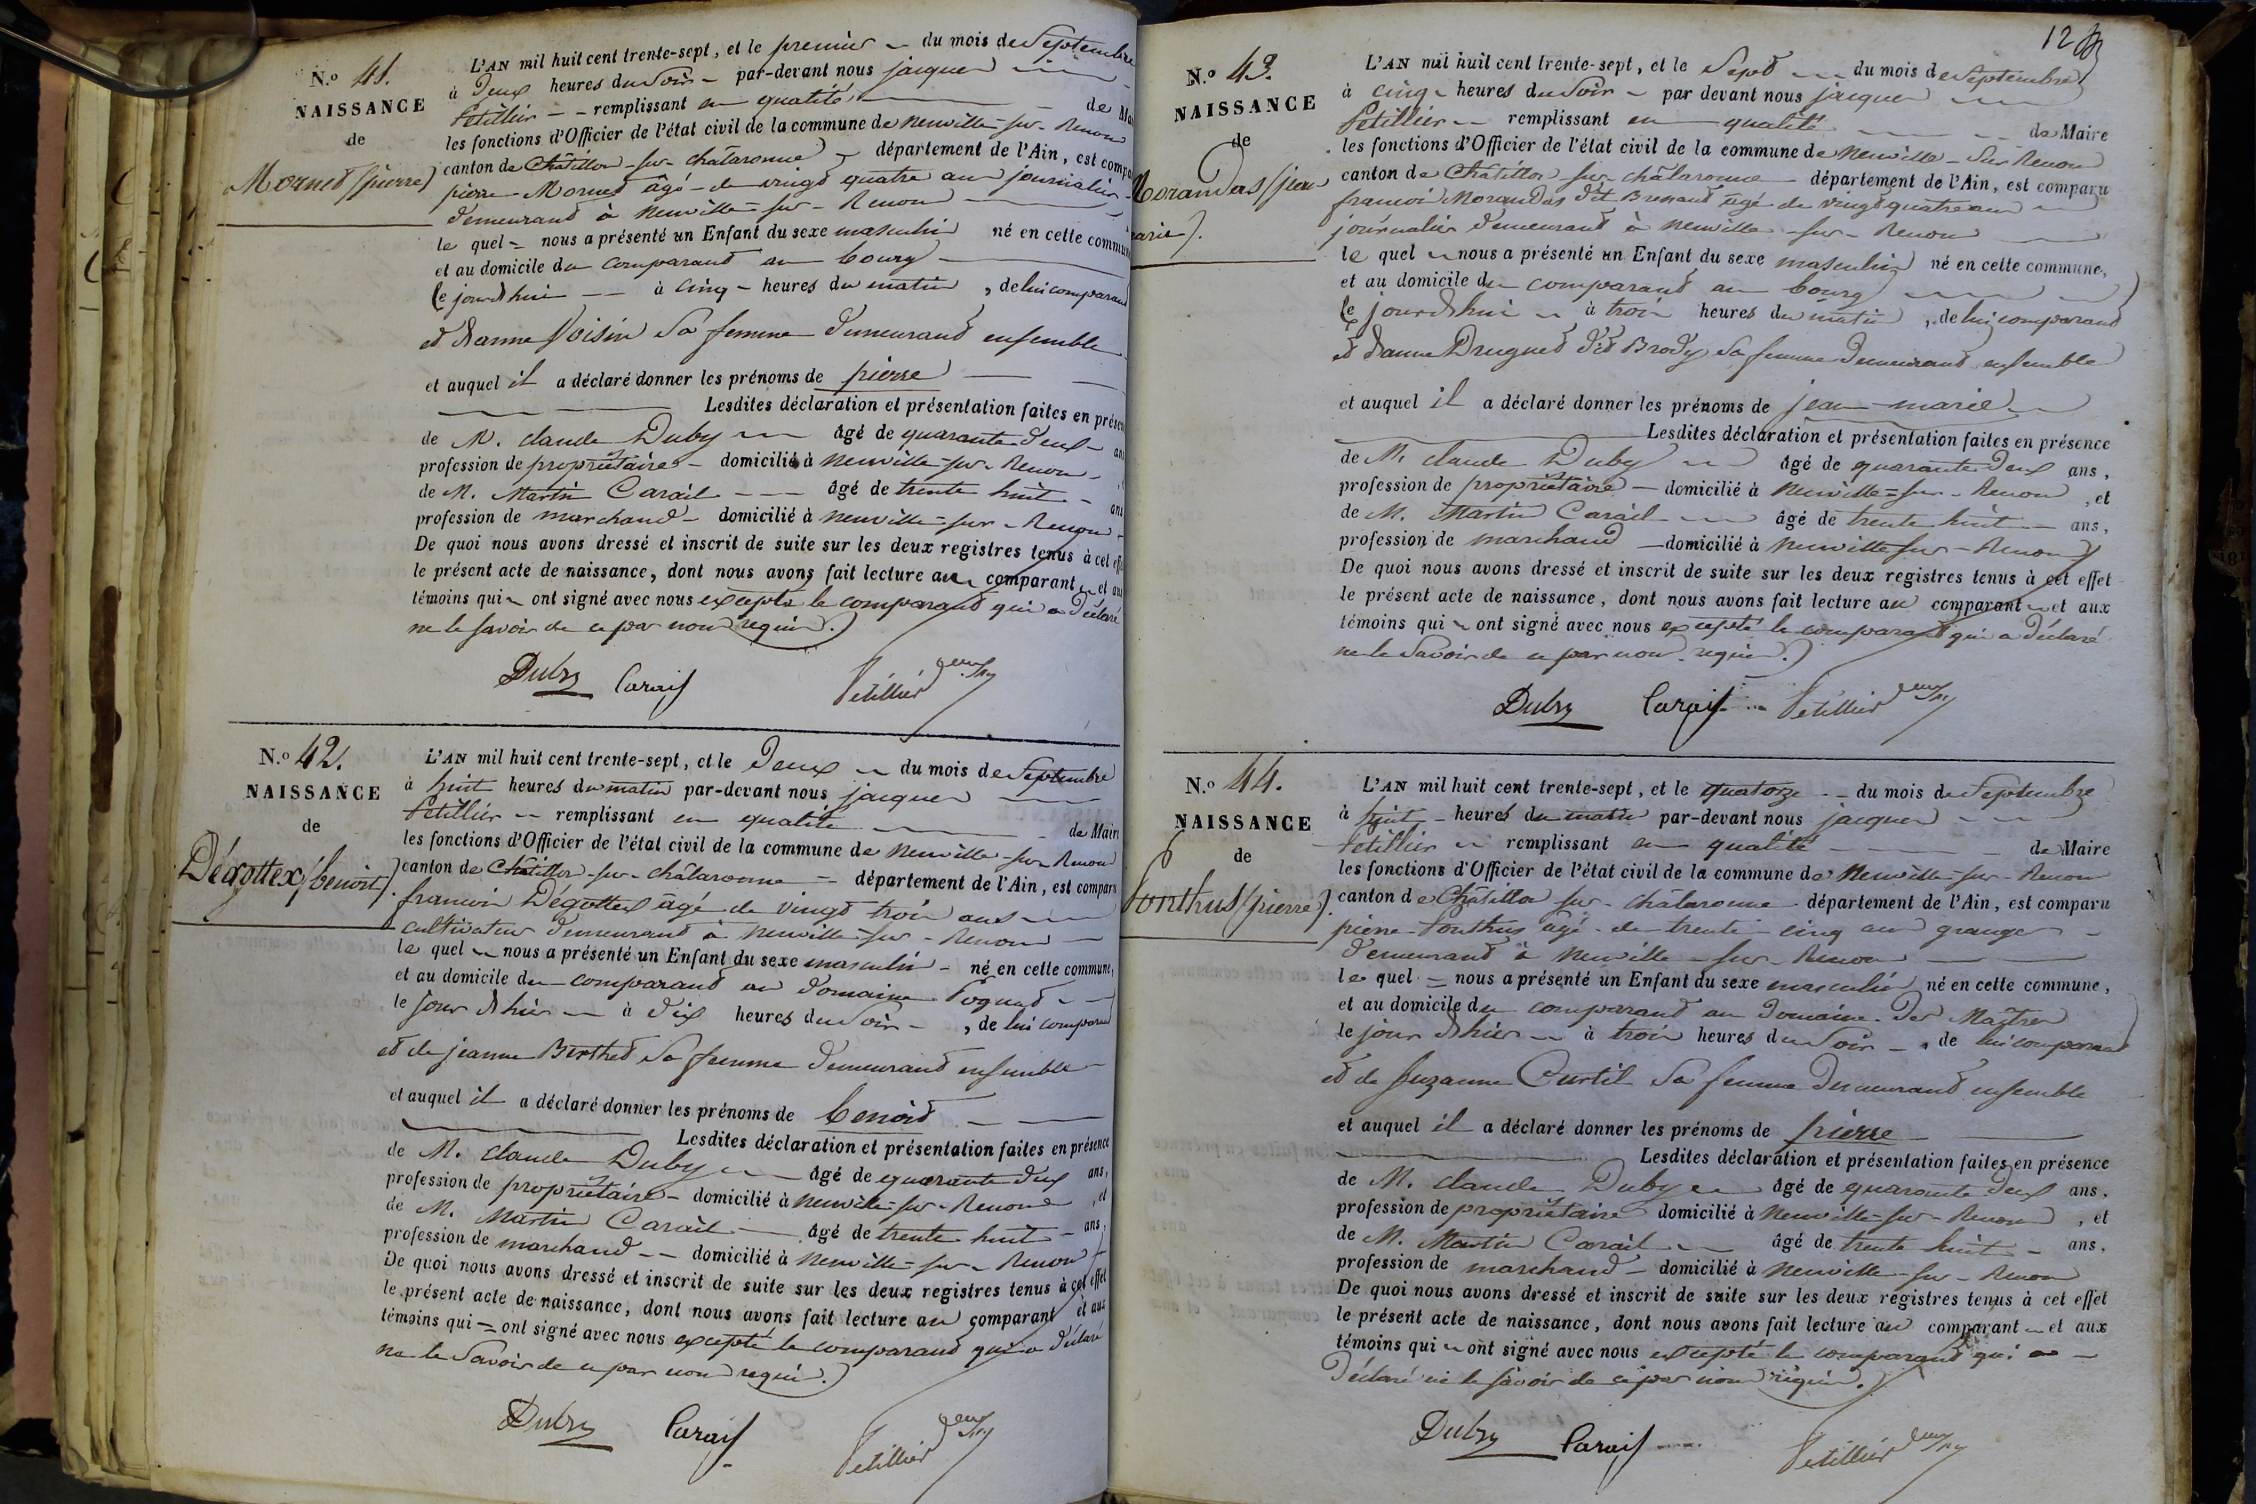 N.o 41.
NAISSANCE
de
Mornet (pierre)
L'AN mil huit cent trente-sept, et le premier du mois de Septembre
à Deux heures du Soir par-devant nous jacques
Petillier remplissant en qualité de
les fonctions d'Officier de l'état civil de la commune de neuville-sur-Renon
canton de Châtillon-sur-châlaronne département de l'Ain, est
pierre Mornet âgé de vingt quatre ans journalier
demeurant à neuville-sur-Renon
le quel nous a présenté un Enfant du sexe masculin né en cette
et au domicile du comparant au bourg
le jourd'hui à cinq heures du matin, de lui comparant
et d'anne Voisin Sa femme demeurant ensemble
et auquel il a déclaré donner les prénoms de pierre
Lesdites déclaration et présentation faites en
de M. claude Duby âgé de quarante deux
profession de propriétaire domicilié à neuville-sur-Renon
de M. Martin Carail âgé de trente huit ans
profession de marchand domicilié à neuville-sur-Renon
De quoi nous avons dressé et inscrit de suite sur les deux registres tenus à cet
le présent acte de naissance, dont nous avons fait lecture au comparant et
témoins qui ont signé avec nous excepté le comparant qui a déclaré
ne le savoir de ce par nous requis.
Duby Carail Petillier
N.o 42.
NAISSANCE
de
Dégottex (benoit).
L'AN mil huit cent trente-sept, et le Deux du mois de Septembre
à huit heures du matin par-devant nous jacques
Petillier remplissant en qualité de Maire
les fonctions d'Officier de l'état civil de la commune de neuville-sur-Renon
canton de Châtillon-sur-châlaronne département de l'Ain, est comparu
françois Dégottex âgé de vingt trois ans
cultivateur demeurant à neuville-sur-Renon
le quel nous a présenté un Enfant du sexe masculin né en cette commune,
et au domicile du comparant au domaine
le jour d'hier à dix heures du Soir, de lui comparant
et de jeanne Berthet Sa femme demeurant ensemble
et auquel il a déclaré donner les prénoms de benoit
Lesdites déclaration et présentation faites en présence
de M. claude Duby âgé de quarante deux ans,
profession de propriétaire domicilié à neuville-sur-Renon, et
de M. Martin Carail âgé de trente huit ans,
profession de marchand domicilié à neuville-sur-Renon
De quoi nous avons dressé et inscrit de suite sur les deux registres tenus à cet effet
le présent acte de naissance, dont nous avons fait lecture au comparant et aux
témoins qui ont signé avec nous excepté le comparant qui a déclaré
ne le Savoir de ce par nous requis.
Duby Carail Petillier
12
N.o 43.
NAISSANCE
de
Morandas (jean
marie).
L'AN mil huit cent trente-sept, et le Sept du mois de Septembre
à cinq heures du Soir par devant nous jacques
Petillier remplissant en qualité de Maire
les fonctions d'Officier de l'état civil de la commune de neuville-Sur-Renon
canton de Châtillon sur châlaronne département de l'Ain, est comparu
françois Morandas dit Bressand âgé de vingt quatre ans
journalier demeurant à neuville-sur-Renon
le quel nous a présenté un Enfant du sexe masculin né en cette commune,
et au domicile du comparant au bourg
le jourd'hui à trois heures du matin, de lui comparant
et d'anne Drugnet dit Brody sa femme demeurant ensemble
et auquel il a déclaré donner les prénoms de jean-marie
Lesdites déclaration et présentation faites en présence
de M. claude Duby âgé de quarante deux ans,
profession de propriétaire domicilié à neuville-sur-Renon, et
de M. Martin Carail âgé de trente huit ans,
profession de marchand domicilié à neuville sur-Renon
De quoi nous avons dressé et inscrit de suite sur les deux registres tenus à cet effet
le présent acte de naissance, dont nous avons fait lecture au comparant et aux
témoins qui ont signé avec nous excepté le comparant qui a déclaré
ne le Savoir de ce par nous requis.
Duby Carail Petillier
N.o 44.
NAISSANCE
de
Ponthus (pierre).
L'AN mil huit cent trente-sept, et le quatorze du mois de Septembre
à huit heures du matin par-devant nous jacques
Petillier remplissant en qualité de Maire
les fonctions d'Officier de l'état civil de la commune de Neuville-sur-Renon
canton de Châtillon sur-châlaronne département de l'Ain, est comparu
pierre Ponthus âgé de trente cinq ans granger
demeurant à neuville-sur-Renon
le quel nous a présenté un Enfant du sexe masculin né en cette commune,
et au domicile du comparant au Domaine Des Maîtres
le jour d'hier à trois heures du Soir, de lui comparant
et de Suzanne Curtil Sa femme demeurant ensemble
et auquel il a déclaré donner les prénoms de pierre
Lesdites déclaration et présentation faites en présence
de M. claude Duby âgé de quarante deux ans,
profession de propriétaire domicilié à neuville-sur-Renon, et
de M. Martin Carail âgé de trente huit ans,
profession de marchand domicilié à neuville-sur-Renon
De quoi nous avons dressé et inscrit de suite sur les deux registres tenus à cet effet
le présent acte de naissance, dont nous avons fait lecture au comparant et aux
témoins qui ont signé avec nous excepté le comparant qui a
Déclaré ne le Savoir de ce par nous requis.
Duby Carail Petillier